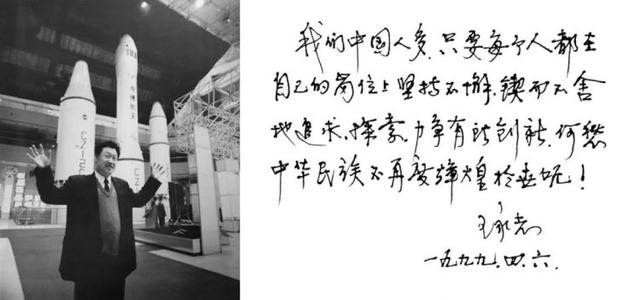 中国航天
我们中国人多,只要每个人都在
自己的岗位上坚持不懈,锲而不舍
地追求、探索,力争有所创新,何愁
中华民族不再度辉煌於世呢!
王永志
一九九九.四.六.